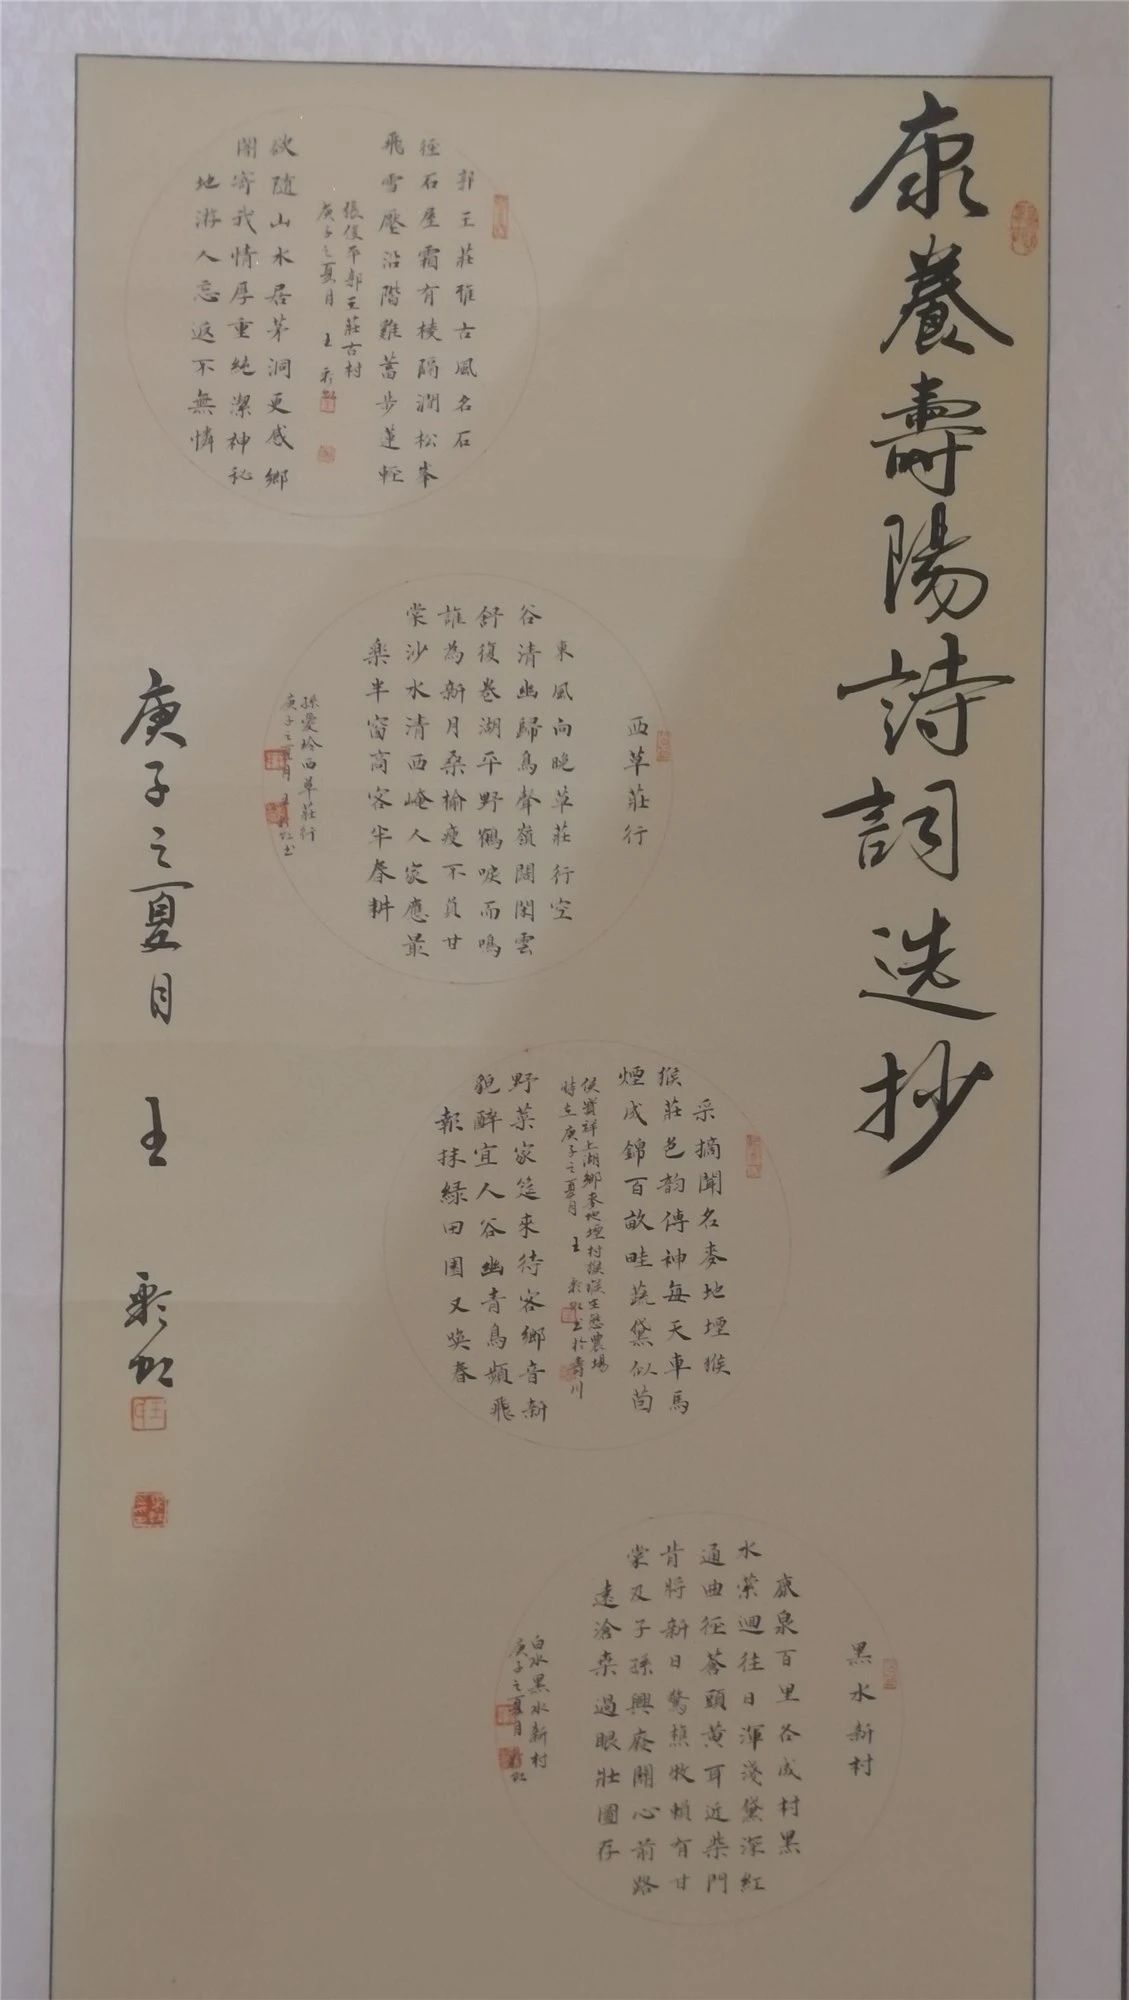 康養壽陽詩詞选抄
郭王莊雅古風名石
徑石屋霜有棱隔澗松峯
飛雪壓沿階難蓄步蓮輕
張俊平郭王莊古村
庚子之夏月 王彩虹
欲随山水居茅洞更感鄉
閑寄我情厚重純潔神秘
地游人忘返不無憐
西草莊行
東風向晚草莊行空
谷清幽歸鳥聲嶺闊閑雲
舒復卷湖平野鶴唳而鳴
誰為新月桑榆瘦不負甘
棠沙水清西崦人家應最
樂半窗商客半春耕
孫愛玲西草莊行
庚子之夏月 王彩虹书
采摘聞名麥地堙猴
猴莊色韵傳神每天車馬
煙成錦百畝畦蔬黛似茵
侯寶祥上湖鄉麥地堙村猴猴生態農場
時在庚子之夏月 王彩虹书於壽川
野菜家筵来待客鄉音新
貌醉宜人谷幽青鳥頻飛
報抹綠田園又喚春
黑水新村
康泉百里各成村黑
水縈迴往日渾淺黛深紅
通曲徑蒼頭黄耳近柴門
肯將新日驚樵牧賴有甘
棠及子孫興廢關心前路
遠滄桑過眼壯圖存
白水黑水新村
庚子之夏月 彩虹
庚子之夏月 王彩虹